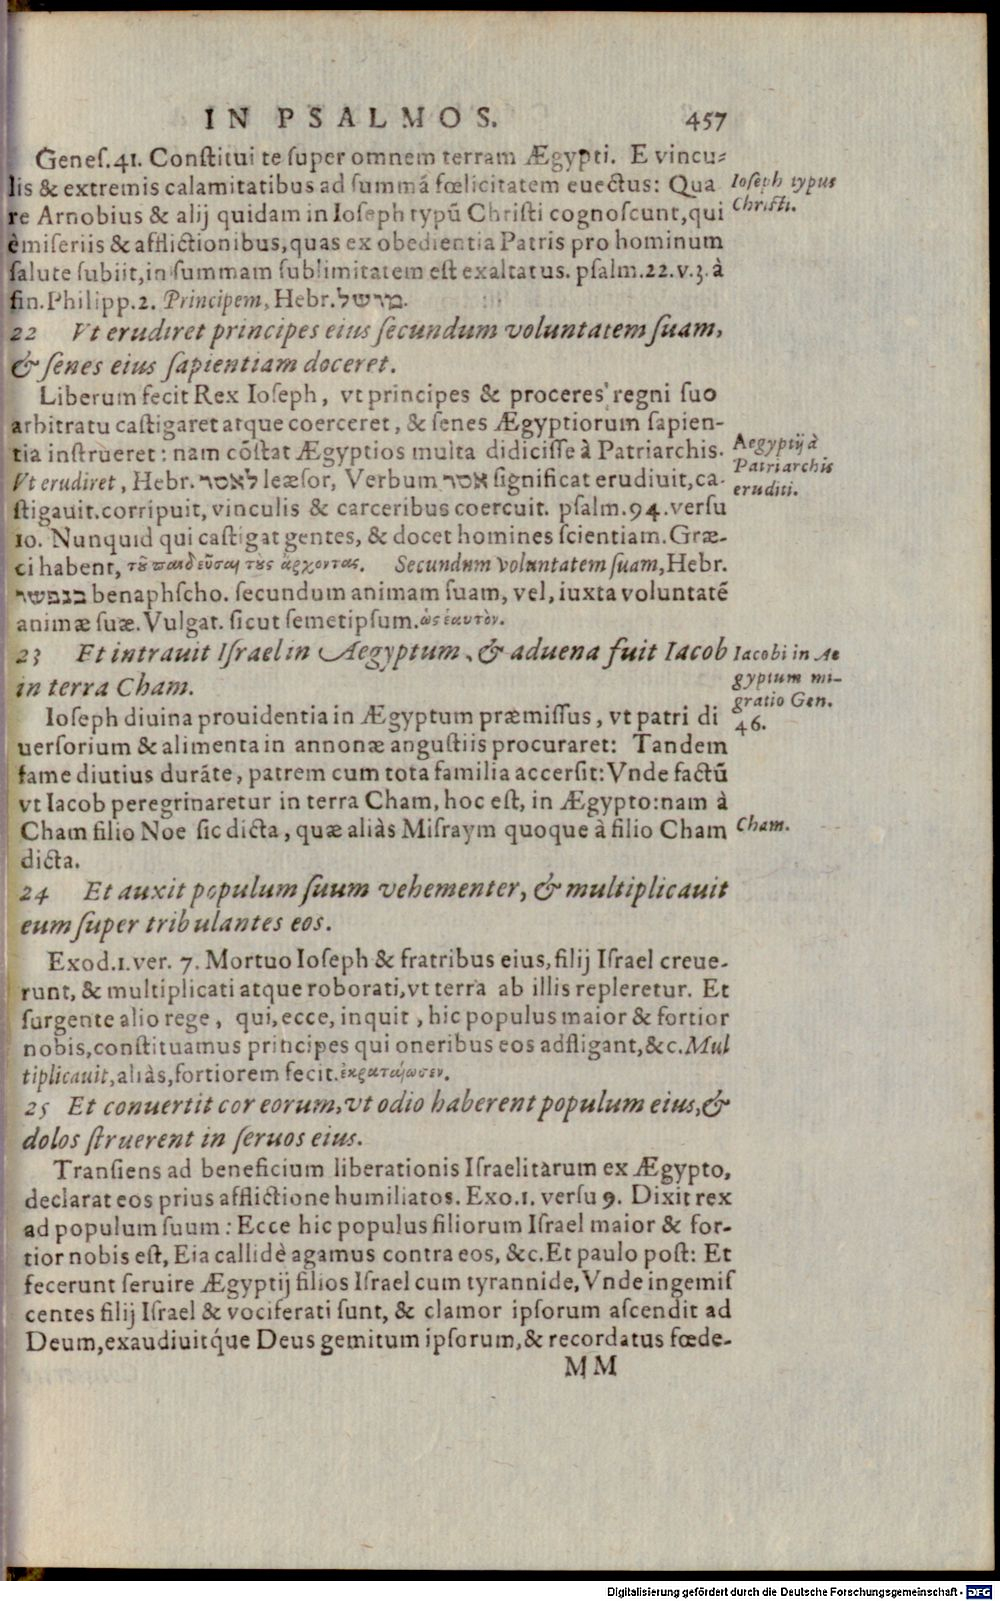 IN PSALMOS. 457
Geneſ.41. Conſtitui te ſuper omnem terram Ægypti. E vincu-
lis & extremis calamitatibus ad ſummā fœlicitatem euectus: Qua
re Arnobius & alij quidam in Ioſeph typū Chriſti cognoſcunt, qui
è miſeriis & afflictionibus, quas ex obedientia Patris pro hominum
ſalute ſubiit, in ſummam ſublimitatem eſt exaltatus. pſalm.22.v.3.à
fin. Philipp.2. Principem, Hebr.
Ioſeph typus
Chriſti.
22 Vt erudiret principes eius ſecundum voluntatem ſuam,
& ſenes eius ſapientiam doceret.
Liberum fecit Rex Ioſeph, vt principes & proceres regni ſuo
arbitratu caſtigaret atque coerceret, & ſenes Ægyptiorum ſapien-
tia inſtrueret: nam cōſtat Ægyptios multa didiciſſe à Patriarchis.
Vt erudiret, Hebr. לאסר leæſor, Verbum אסר significat erudiuit, ca-
ſtigauit. corripuit, vinculis & carceribus coercuit. pſalm.94.verſu
10. Nunquid qui caſtigat gentes, & docet homines ſcientiam. Græ-
ci habent, τȣ̃ παιδεῦσαι τȣ̀ς ἄρχοντας. Secundum voluntatem ſuam, Hebr.
בנפשו benaphſcho. ſecundum animam ſuam, vel, iuxta voluntatē
animæ ſuæ. Vulgat. ſicut ſemetipſum. ὡς ἑαυτὸν.
Aegyptij à
Patriarchis
eruditi.
23 Et intrauit Iſrael in Aegyptum, & aduena fuit Iacob
in terra Cham.
Iacobi in Ae
gyptum mi-
gratio Gen.
46.
Ioſeph diuina prouidentia in Ægyptum præmiſſus, vt patri di
uerſorium & alimenta in annonæ anguſtiis procuraret: Tandem
fame diutius durāte, patrem cum tota familia accerſit: Vnde factū
vt Iacob peregrinaretur in terra Cham, hoc eſt, in Ægypto: nam à
Cham filio Noe ſic dicta, quæ aliàs Miſraym quoque à filio Cham
dicta.
Cham.
24 Et auxit populum ſuum vehementer, & multiplicauit
eum ſuper tribulantes eos.
Exod.1.ver. 7. Mortuo Ioſeph & fratribus eius, filij Iſrael creue-
runt, & multiplicati atque roborati, vt terra ab illis repleretur. Et
ſurgente alio rege, qui, ecce, inquit, hic populus maior & fortior
nobis, conſtituamus principes qui oneribus eos adfligant, &c. Mul
tiplicauit, aliàs, fortiorem fecit. ἐκραταίωσεν.
25 Et conuertit cor eorum, vt odio haberent populum eius, &
dolos ſtruerent in ſeruos eius.
Tranſiens ad beneficium liberationis Iſraelitarum ex Ægypto,
declarat eos prius afflictione humiliatos. Exo.1. verſu 9. Dixit rex
ad populum ſuum: Ecce hic populus filiorum Iſrael maior & for-
tior nobis eſt, Eia callidè agamus contra eos, &c. Et paulo poſt: Et
fecerunt ſeruire Ægyptij filios Iſrael cum tyrannide, Vnde ingemiſ
centes filij Iſrael & vociferati ſunt, & clamor ipſorum aſcendit ad
Deum, exaudiuitq́ue Deus gemitum ipſorum, & recordatus fœde-
MM
Digitalisierung gefördert durch die Deutsche Forschungsgemeinschaft - DFG